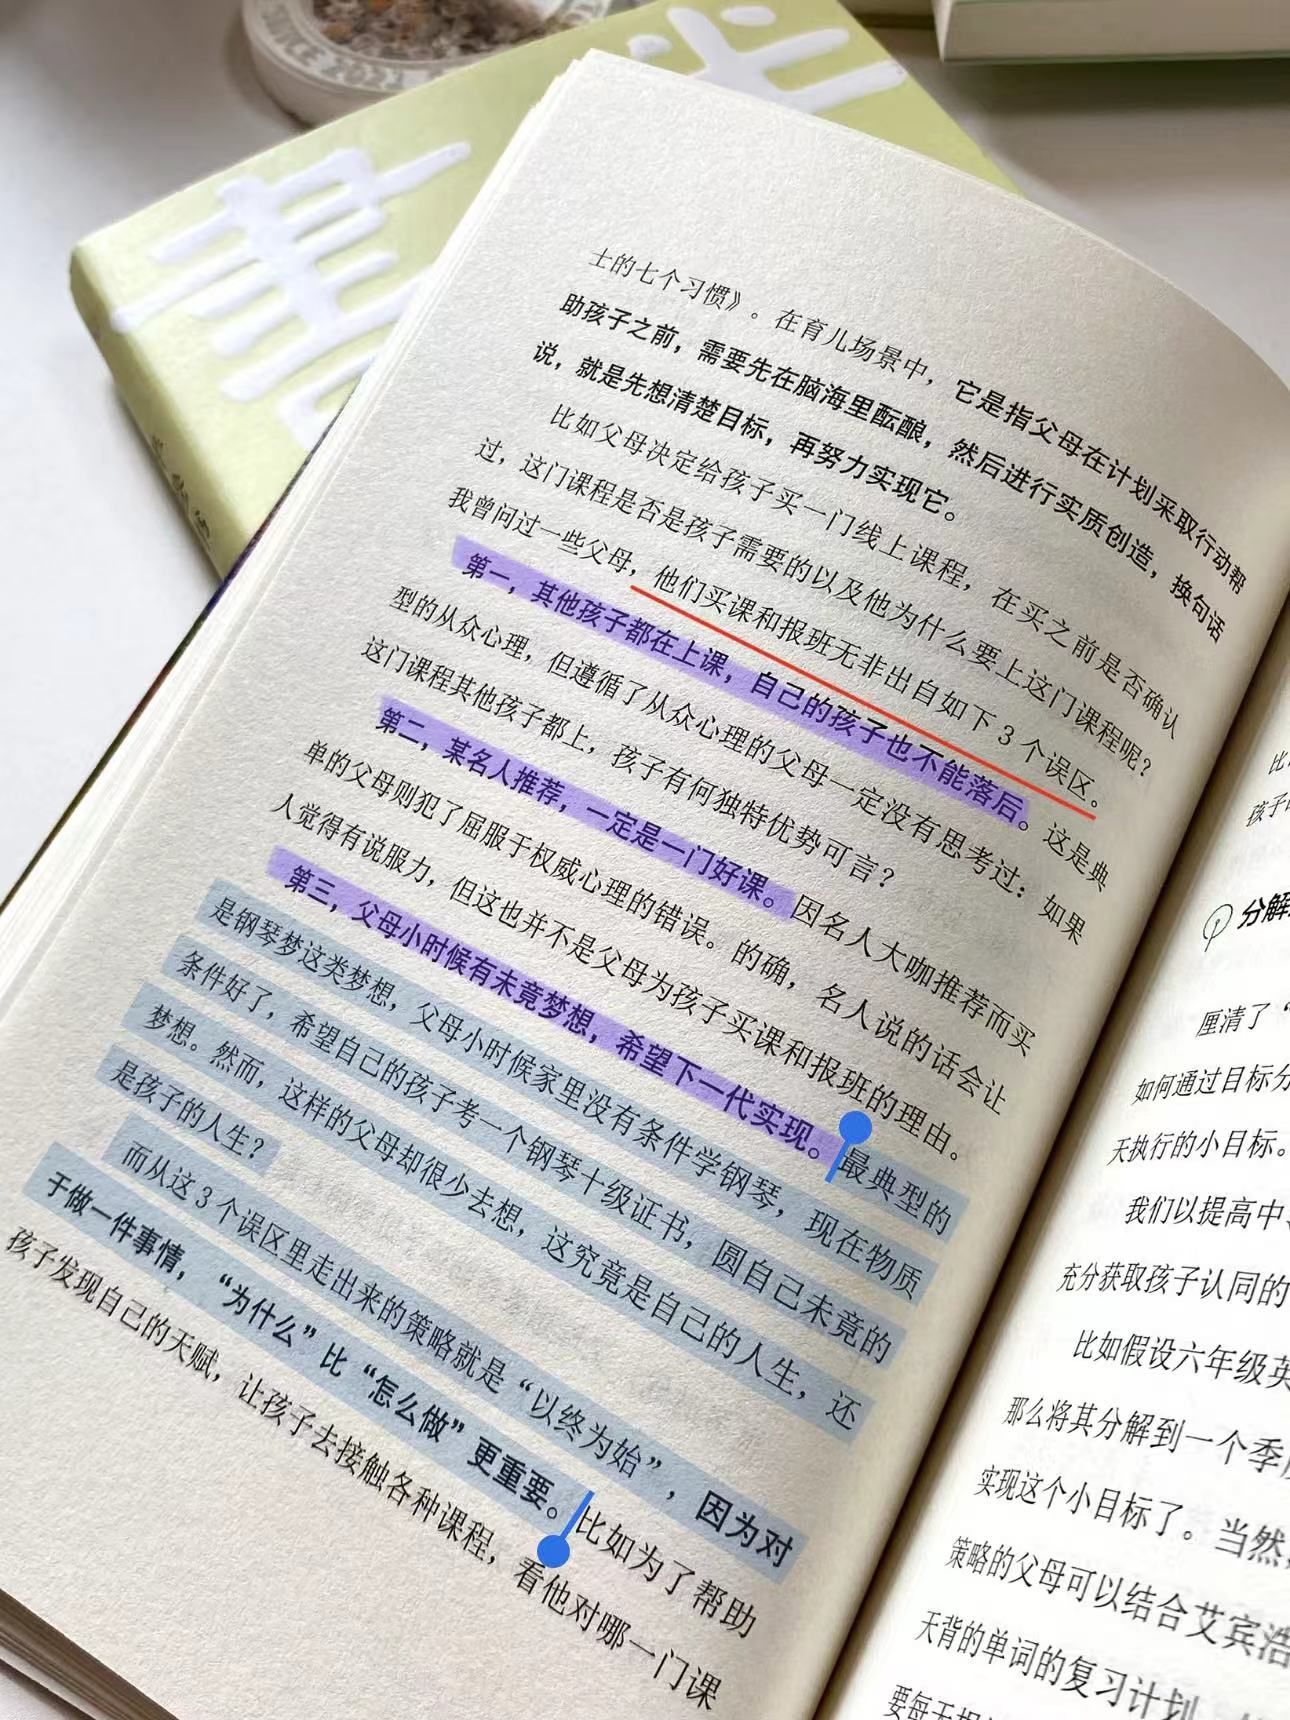 士的七个习惯》。在育儿场景中，它是指父母在计划采取行动帮
助孩子之前，需要先在脑海里酝酿，然后进行实质创造，换句话
说，就是先想清楚目标，再努力实现它。
比如父母决定给孩子买一门线上课程，在买之前是否确认
过，这门课程是否是孩子需要的以及他为什么要上这门课程呢？
我曾问过一些父母，他们买课和报班无非出自如下3个误区。
第一，其他孩子都在上课，自己的孩子也不能落后。这是典
型的从众心理，但遵循了从众心理的父母一定没有思考过：如果
这门课程其他孩子都上，孩子有何独特优势可言？
第二，某名人推荐，一定是一门好课。因名人大咖推荐而买
单的父母则犯了屈服于权威心理的错误。的确，名人说的话会让
人觉得有说服力，但这也并不是父母为孩子买课和报班的理由。
第三，父母小时候有未竟梦想，希望下一代实现。最典型的
是钢琴梦这类梦想，父母小时候家里没有条件学钢琴，现在物质
条件好了，希望自己的孩子考一个钢琴十级证书，圆自己未竟的
梦想。然而，这样的父母却很少去想，这究竟是自己的人生，还
是孩子的人生？
而从这3个误区里走出来的策略就是“以终为始”，因为对
于做一件事情，“为什么”比“怎么做”更重要。比如为了帮助
孩子发现自己的天赋，让孩子去接触各种课程，看他对哪一门课
比
孩子
分解
厘清了“
如何通过目标分
天执行的小目标。
我们以提高中
充分获取孩子认同的
比如假设六年级英
那么将其分解到一个季
实现这个小目标了。当然，
策略的父母可以结合艾宾浩
天背的单词的复习计划
要每天